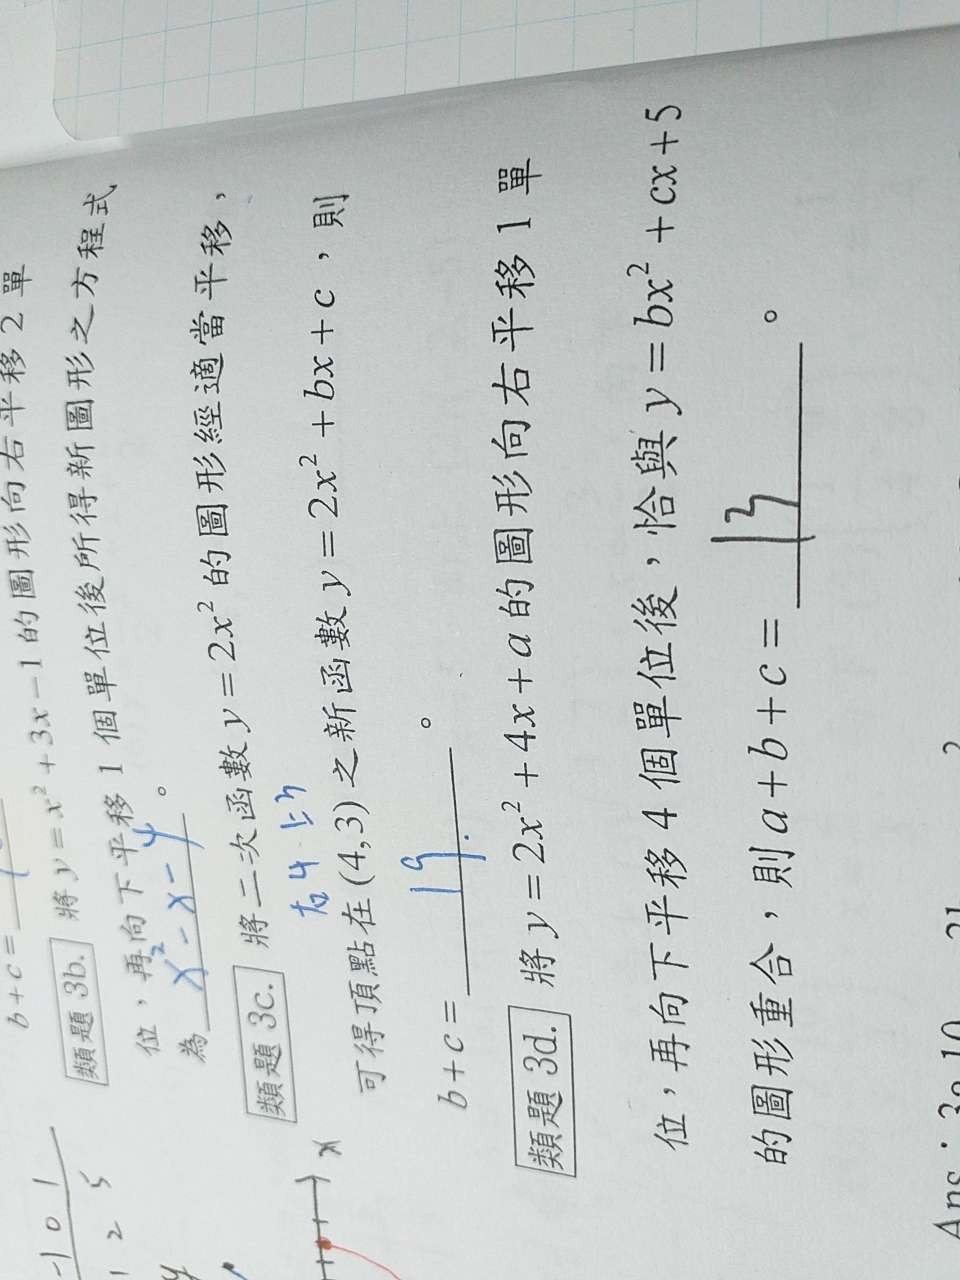 b + c =
類題 3b. 將 y = x² + 3x − 1 的圖形向右平移 2 單
位，再向下平移 1 個單位後所得新圖形之方程式
為 x² − x − 4 。
類題 3c. 將二次函數 y = 2x² 的圖形經適當平移，
右4 上3
可得頂點在 (4,3) 之新函數 y = 2x² + bx + c，則
b + c = 19. 。
類題 3d. 將 y = 2x² + 4x + a 的圖形向右平移 1 單
位，再向下平移 4 個單位後，恰與 y = bx² + cx + 5
的圖形重合，則 a + b + c = 13 。
-1 0 1
1 2 5
x
y